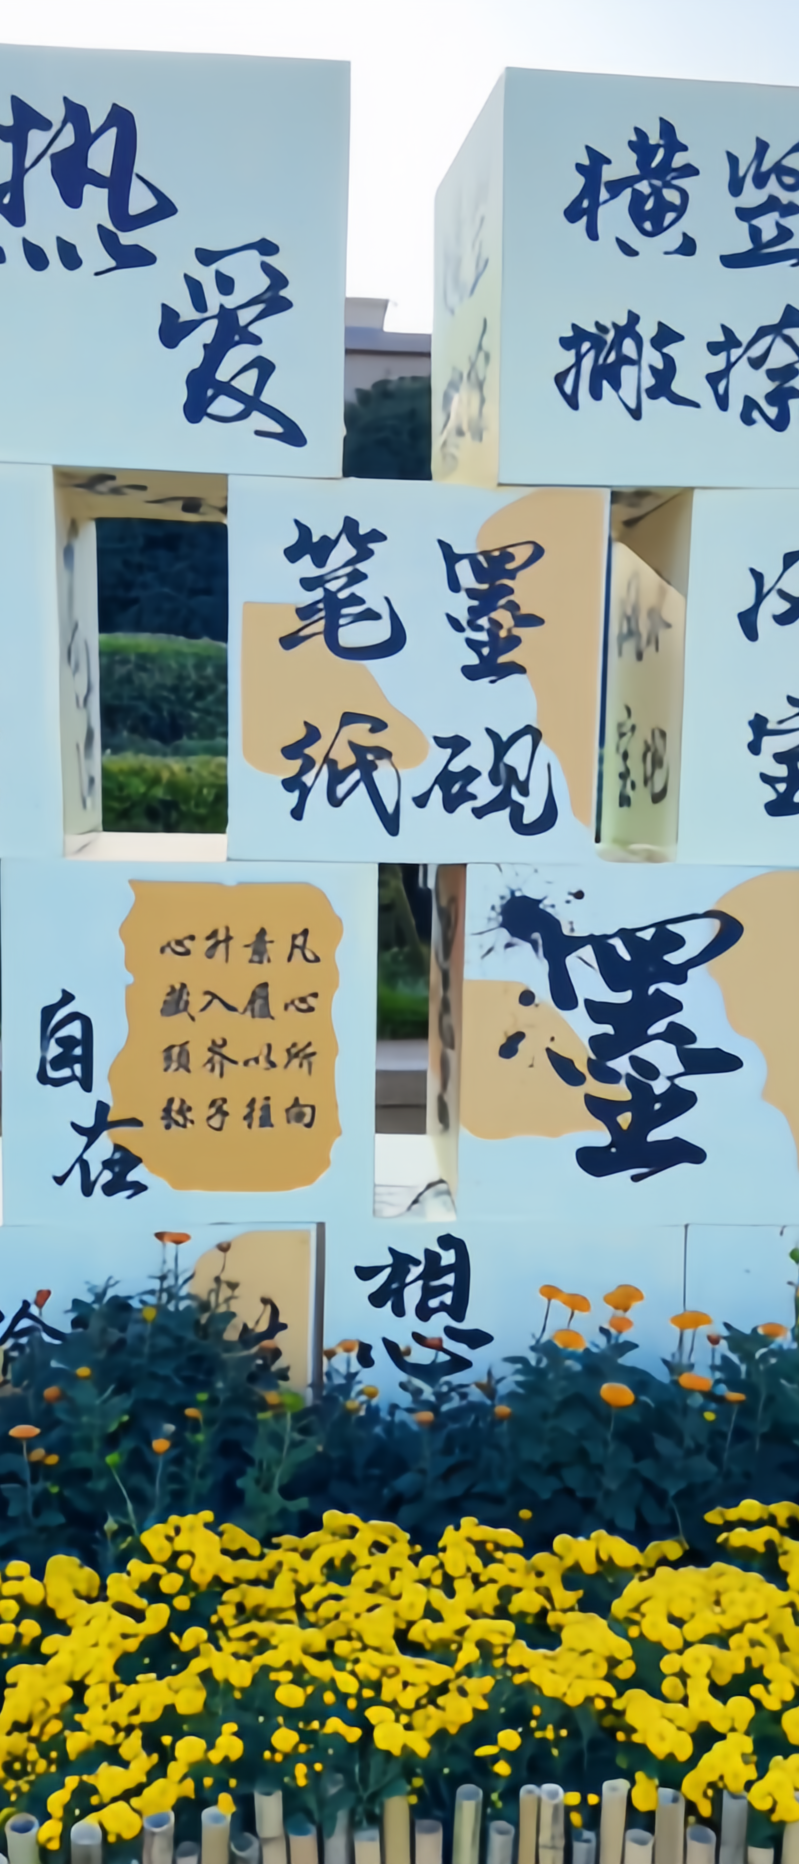 热
爱
横竖
撇捺
笔墨
纸砚
宝
凡心所向
素履以往
升入芥子
心藏須弥
自
在
墨
想